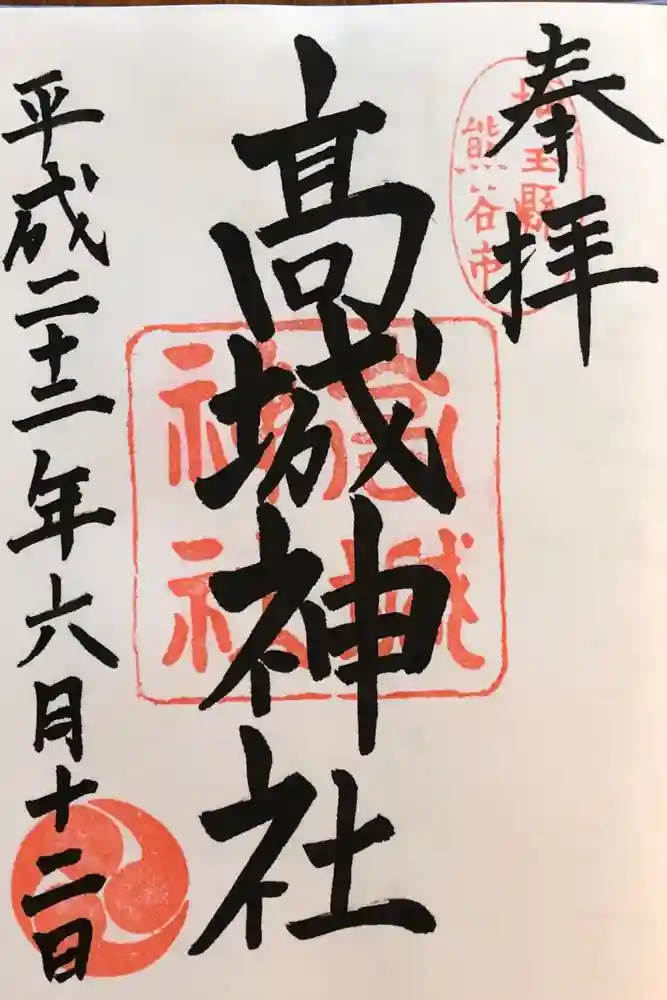 奉拝
埼玉縣
熊谷市
高城神社
高城
神社
平成二十二年六月十二日